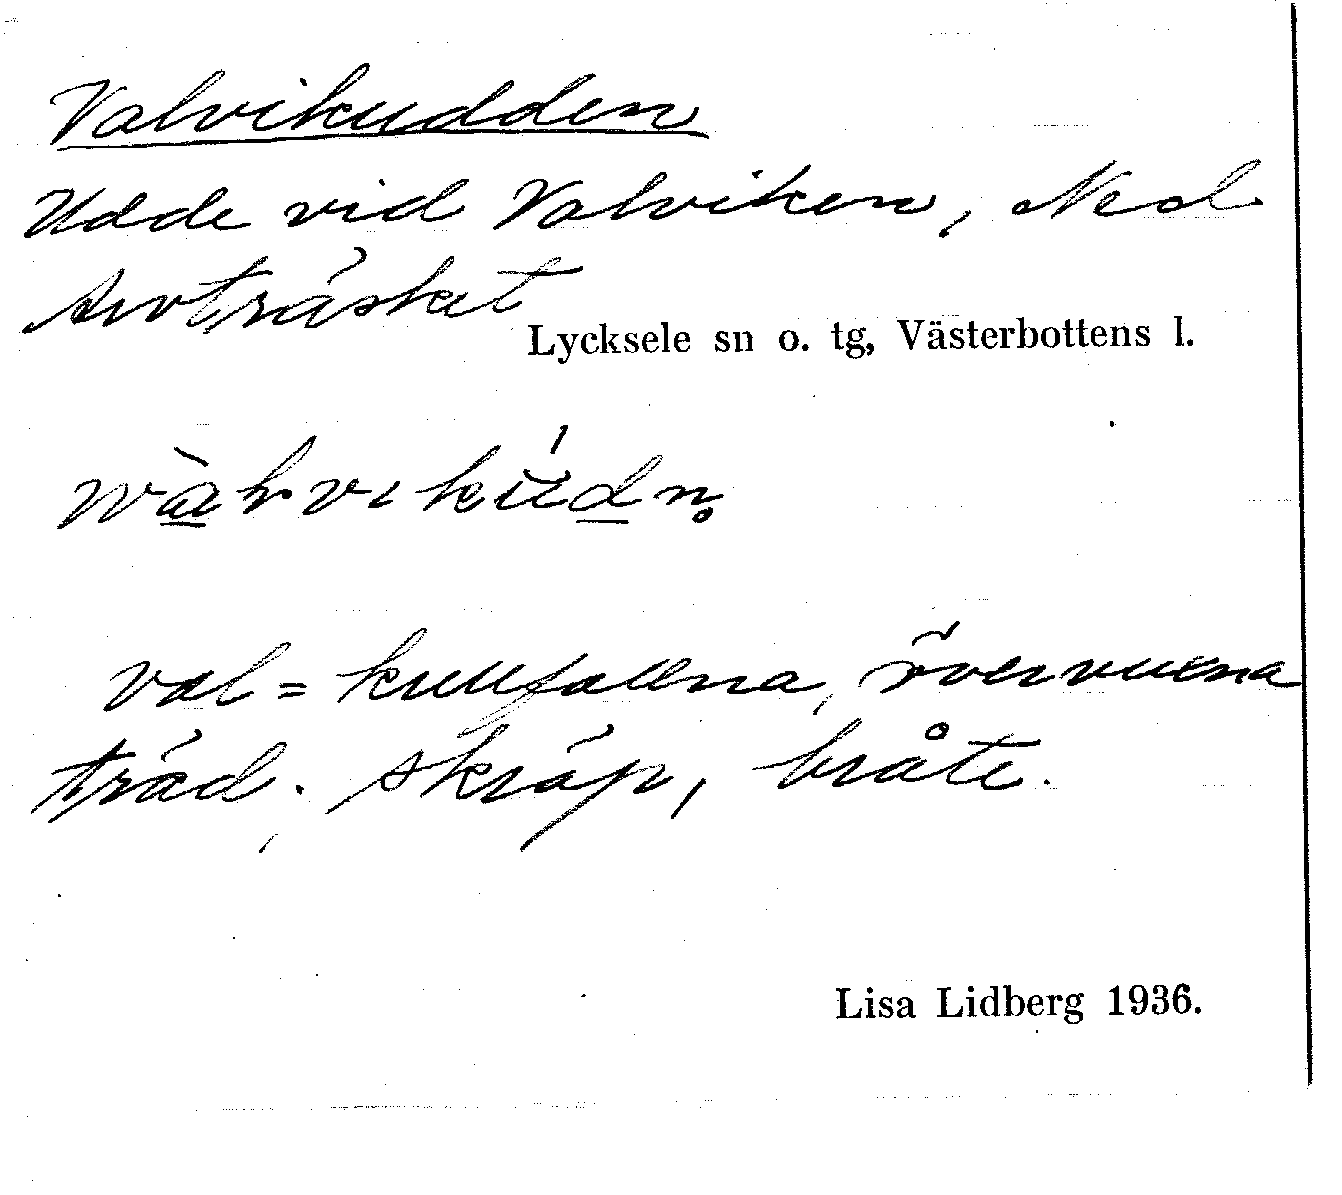 Valvikudden
Udde vid Valviken, Ned
Arvträsket
Lycksele sn o. tg, Västerbottens l.
val = kullfallna, övervuxna
träd. skräp, bråte.
Lisa Lidberg 1936.